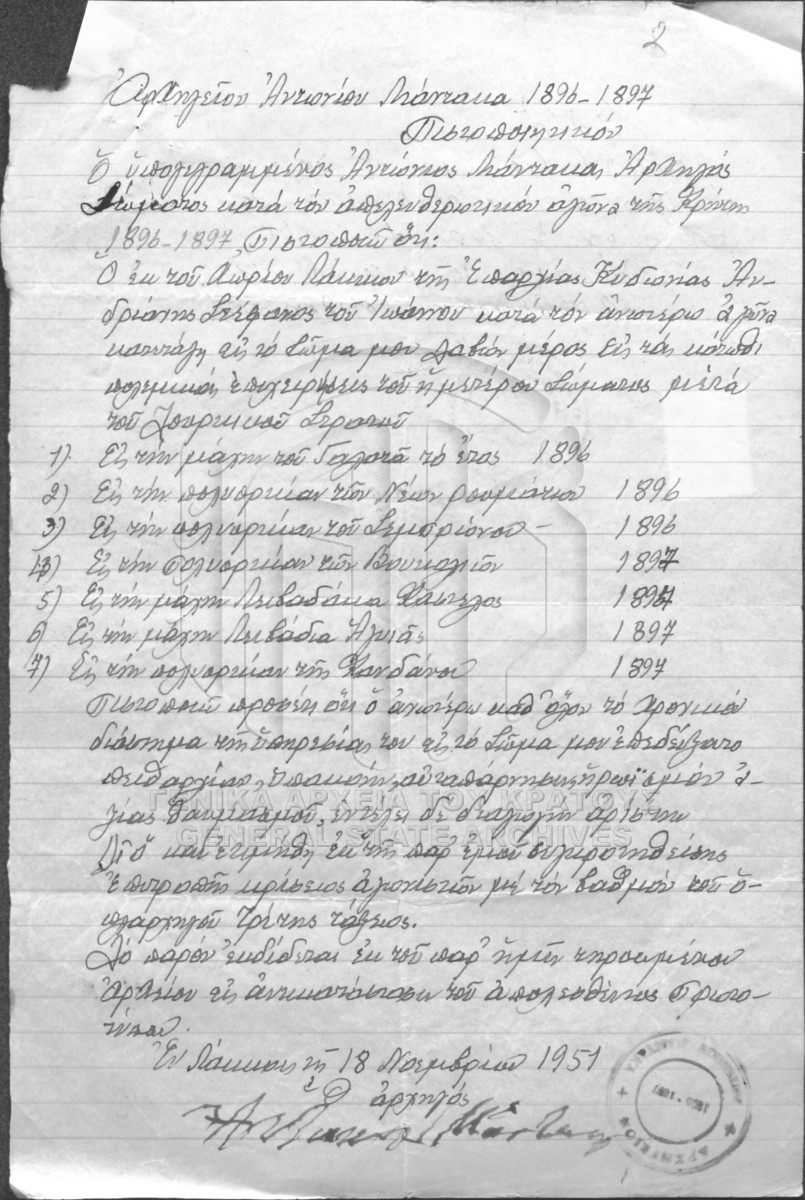 2
Ἀρχηγεῖον Ἀντωνίου Μάντακα 1896-1897
Πιστοποιητικόν
Ὁ ὑπογεγραμμένος Ἀντώνιος Μάντακας Ἀρχηγός
Σώματος κατά τόν ἀπελευθερωτικόν ἀγῶνα τῆς Κρήτης
1896-1897, Πιστοποιῶ ὅτι:
Ὁ ἐκ τοῦ Χωρίου Λάκκου τῆς Ἐπαρχίας Κυδωνίας Ἀν-
δριάνης Στέφανος τοῦ Ἰωάννου κατά τόν ἀνωτέρω ἀγῶνα
κατετάγη εἰς τό Σῶμα μου λαβών μέρος εἰς τάς κάτωθι
πολεμικάς ἐπιχειρήσεις τοῦ ἡμετέρου Σώματος μετά
τοῦ Τουρκικοῦ Στρατοῦ
1) Εἰς τήν μάχην τοῦ Γαλατᾶ τό ἔτος 1896
2) Εἰς τήν πολιορκίαν τῶν Νέων Ρουμάτων 1896
3) Εἰς τήν πολιορκίαν τοῦ Σεμπρώνου - 1896
4) Εἰς τήν Πολιορκίαν τῶν Βουκολιῶν 1897
5) Εἰς τήν μάχην Λειβαδάκα Καστέλος 1897
6) Εἰς τήν μάχην Λειβάδια Ἁγιᾶς 1897
7) Εἰς τήν πολιορκίαν τῆς Κανδάνου 1897
Πιστοποιῶ προσέτι ὅτι ὁ ἀνωτέρω καθ' ὅλον τό χρονικόν
διάστημα τῆς ὑπηρεσίας του εἰς τό Σῶμα μου ἐπεδείξατο
πειθαρχίαν, ὑπακοήν, αὐταπάρνησιν, ἡρωϊσμόν ἀ-
ξίας θαυμασμοῦ, ἐντελεῖ δέ διαγωγήν ἀρίστην
Διό καί ἐτιμήθη ἐκ τῆς παρ' ἐμοῦ συγκροτηθείσης
Ἐπιτροπῆς κρίσεως ἀγωνιστῶν μέ τόν βαθμόν τοῦ ὁ-
πλαρχηγοῦ Τρίτης τάξεως.
Τό παρόν ἐκδίδεται ἐκ τοῦ παρ' ἡμῖν τηρουμένου
ἀρχείου εἰς ἀντικατάστασιν τοῦ ἀπολεσθέντος Πρωτο-
τύπου.
Ἐν Λάκκοις τῇ 18 Νοεμβρίου 1951
Ὁ ἀρχηγός
ΑΡΧΗΓΕΙΟΝ
1896-1897
ΓΕΝΙΚΑ ΑΡΧΕΙΑ ΤΟΥ ΚΡΑΤΟΥΣ
GENERAL STATE ARCHIVES